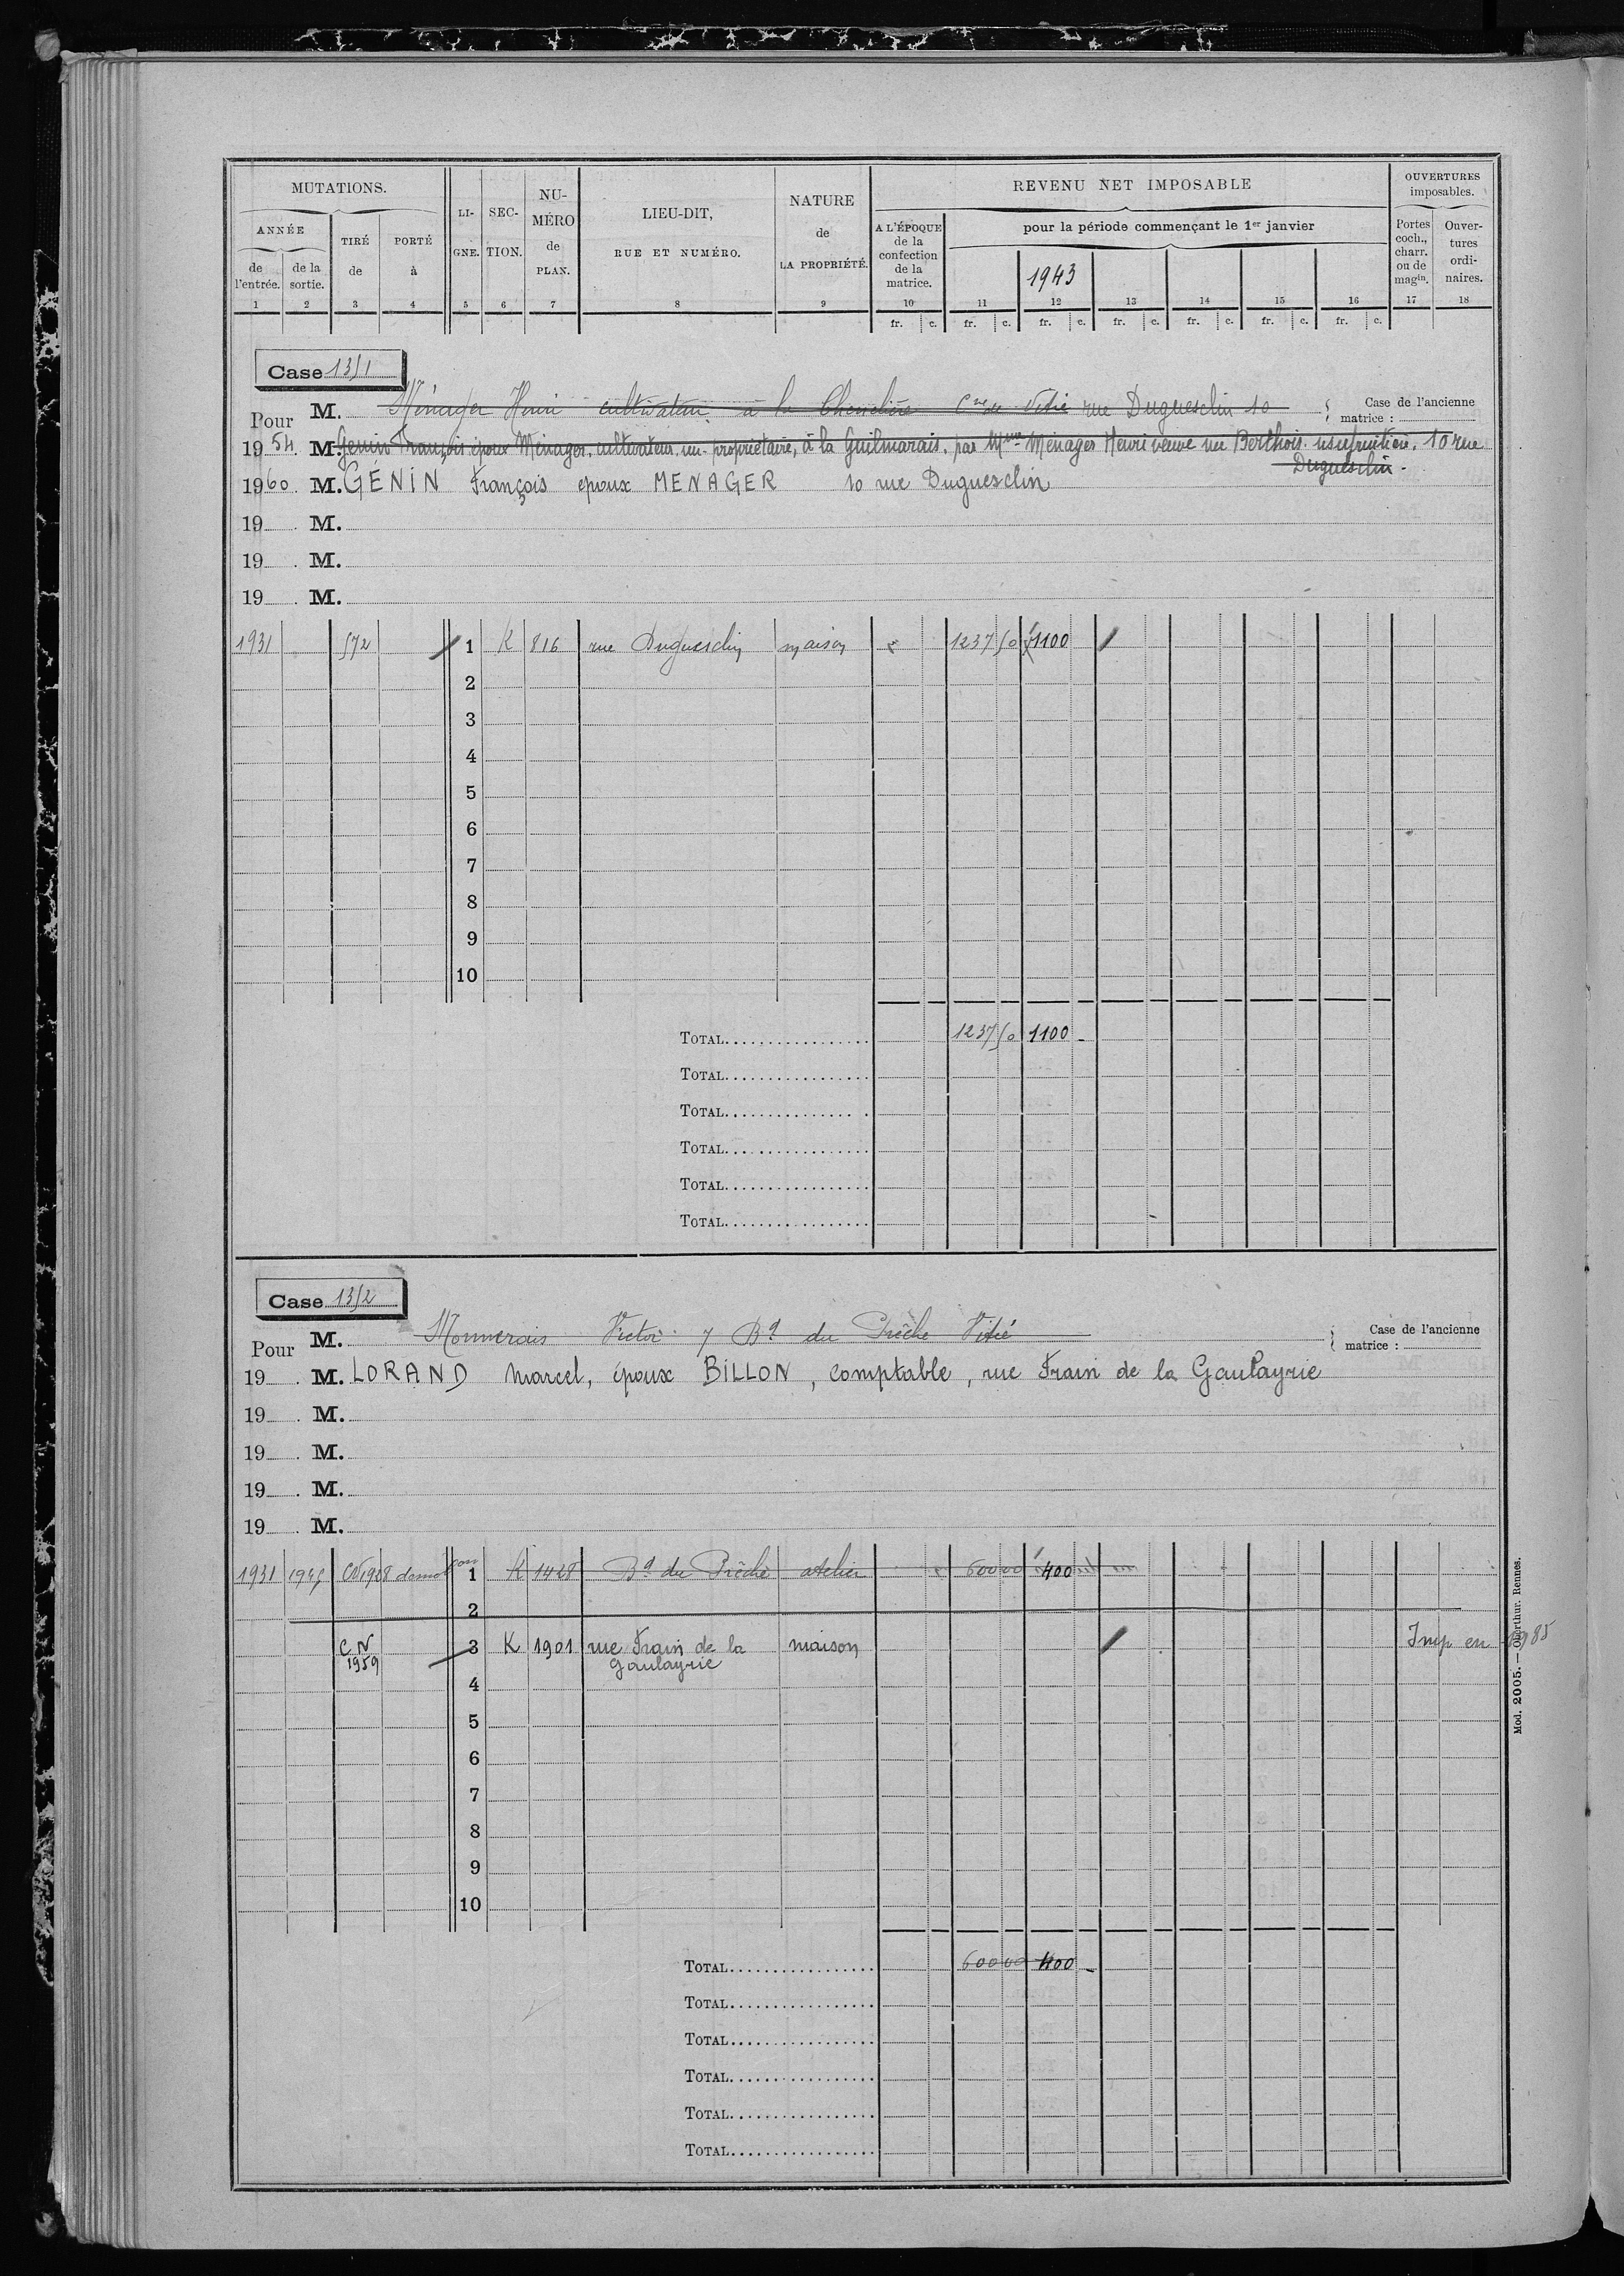 MUTATIONS.
ANNÉE
de l'entrée.
de la sortie.
TIRÉ de
PORTÉ à
LI-GNE.
SEC-TION.
NU-MÉRO de PLAN.
LIEU-DIT,
RUE ET NUMÉRO.
NATURE de LA PROPRIÉTÉ.
REVENU NET IMPOSABLE
A L'ÉPOQUE de la confection de la matrice.
pour la période commençant le 1er janvier
1943
OUVERTURES imposables.
Portes coch., charr. ou de magin.
Ouver-tures ordi-naires.
1 2 3 4 5 6 7 8 9 10 11 12 13 14 15 16 17 18
fr. c. fr. c. fr. c. fr. c. fr. c. fr. c. fr. c.
Case 1351
Pour M. Ménager Henri cultivateur à la Cne de Vitré rue Duguesclin 10 Case de l'ancienne matrice :
1954. M. Genin François époux Ménager, cultivateur, nu-propriétaire, à la Guilmarais, par Mme Ménager Henri veuve née Berthois usufruitière. 10 rue
Duguesclin.
1960 M. GÉNIN François époux MENAGER 10 rue Duguesclin
19 . M.
19 . M.
19 . M.
1931 572 1 K 816 rue Duguesclin maison 1237 50 1100
2
3
4
5
6
7
8
9
10
TOTAL 1237 50 1100 -
TOTAL
TOTAL
TOTAL
TOTAL
TOTAL
Case 1352
Pour M. Monnerais Victor 7 Bd du Prêche Vitré Case de l'ancienne matrice :
19 . M. LORAND Marcel, époux BILLON, comptable, rue Frain de la Gaulayrie
19 . M.
19 . M.
19 . M.
19 . M.
1931 CN 1928 1 K 1428 Bd du Prêche atelier 600 00 400
2
CN 1959 3 K 1901 rue Frain de la Gaulayrie maison Imp en 1985
4
5
6
7
8
9
10
TOTAL 600 00 400 -
TOTAL
TOTAL
TOTAL
TOTAL
TOTAL
Mod. 2005. — Oberthur. Rennes.